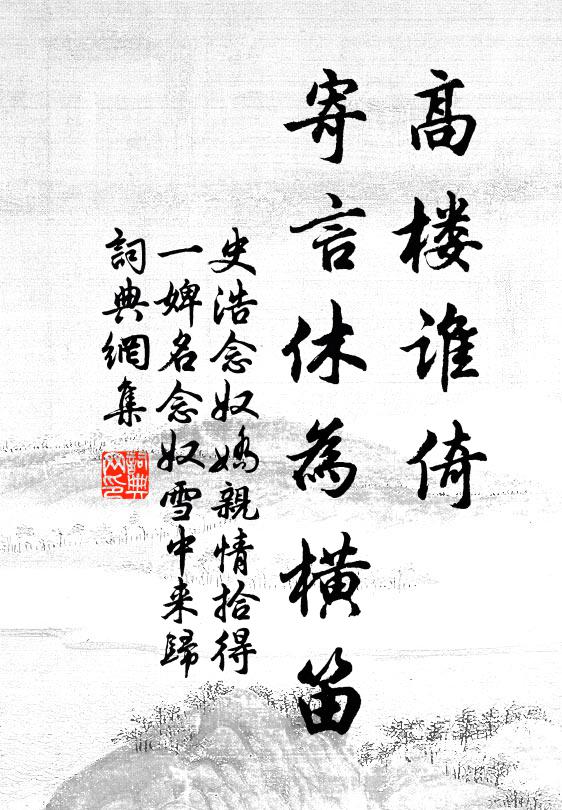 高楼誰倚
寄言休為横笛
史浩念奴嬌親情拾得
一婢名念奴雪中来歸
詞典網集
詞典
网印